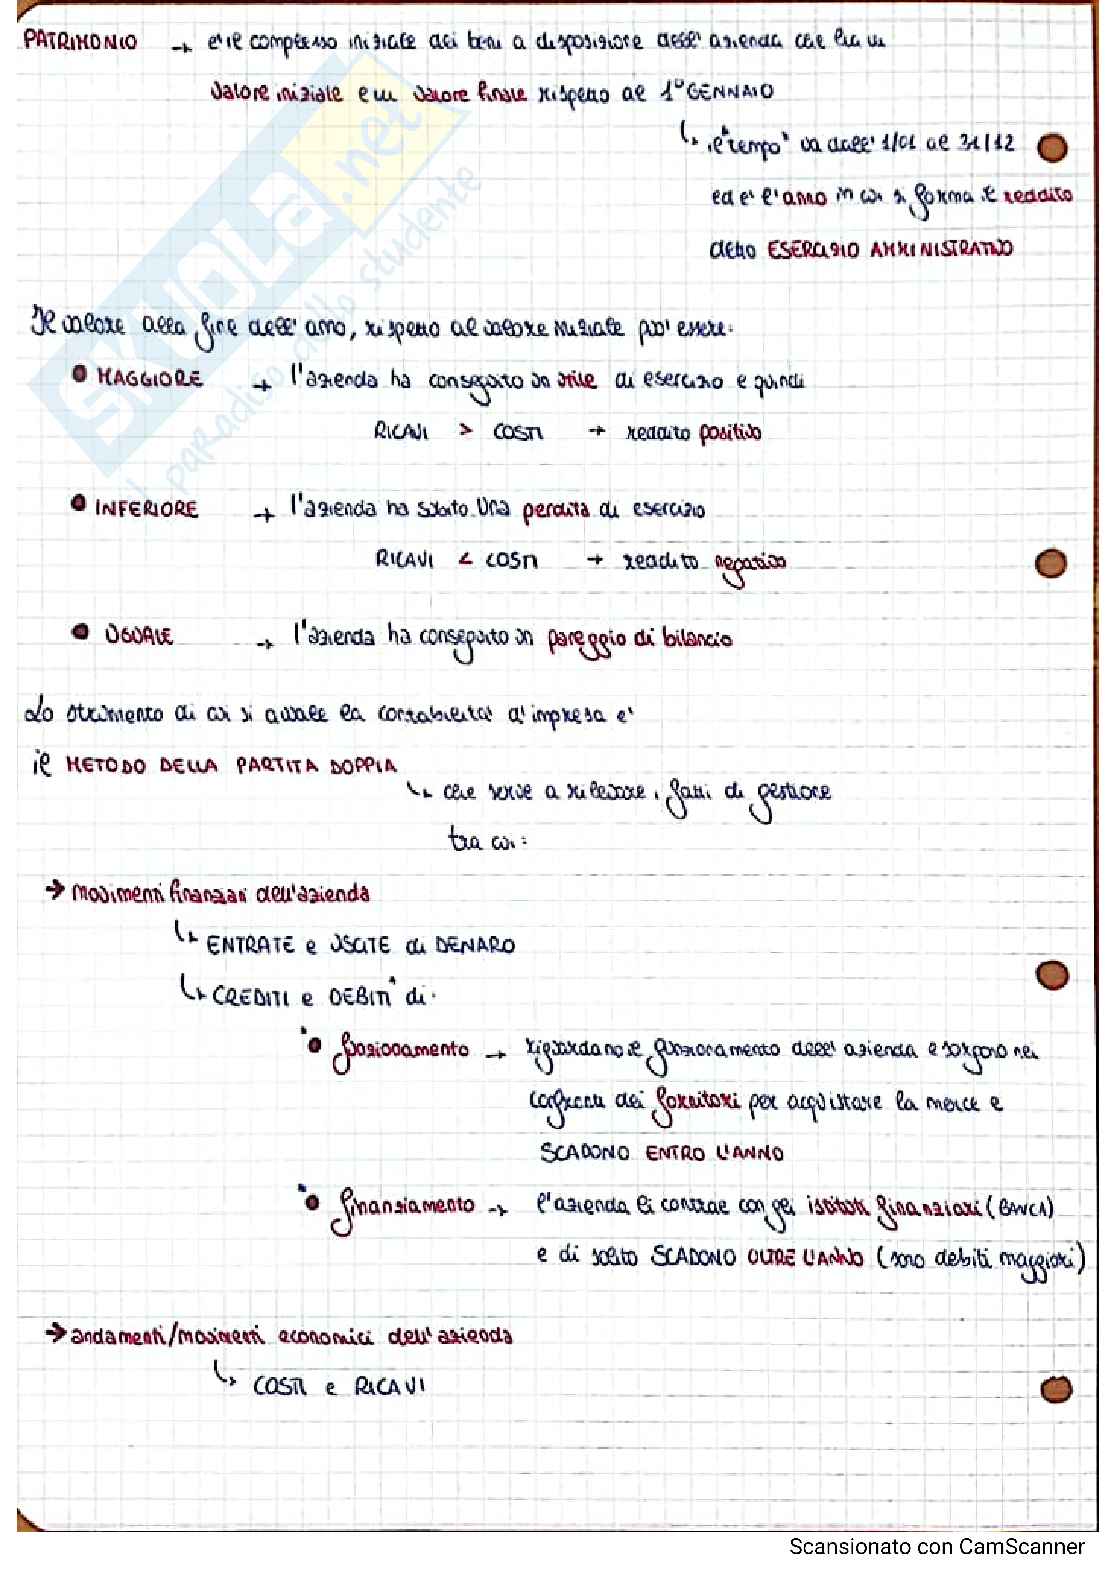 PATRIMONIO → è il complesso iniziale dei beni a disposizione dell'azienda che ha un
valore iniziale e un valore finale rispetto al 1° GENNAIO
↳ il "tempo" va dall' 1/01 al 31/12
ed è l'anno in cui si forma il reddito
detto ESERCIZIO AMMINISTRATIVO
Il valore alla fine dell'anno, rispetto al valore iniziale può essere:
• MAGGIORE → l'azienda ha conseguito un utile di esercizio e quindi
RICAVI > COSTI → reddito positivo
• INFERIORE → l'azienda ha subito una perdita di esercizio
RICAVI < COSTI → reddito negativo
• UGUALE → l'azienda ha conseguito un pareggio di bilancio
Lo strumento di cui si avvale la contabilità d'impresa è
il METODO DELLA PARTITA DOPPIA
↳ che serve a rilevare i fatti di gestione
tra cui:
→ movimenti finanziari dell'azienda
↳ ENTRATE e USCITE di DENARO
↳ CREDITI e DEBITI di:
• funzionamento → riguardano il funzionamento dell'azienda e sorgono nei
confronti dei fornitori per acquistare la merce e
SCADONO ENTRO L'ANNO
• finanziamento → l'azienda li contrae con gli istituti finanziari (BANCA)
e di solito SCADONO OLTRE L'ANNO (sono debiti maggiori)
→ andamenti/movimenti economici dell'azienda
↳ COSTI e RICAVI
SKUOLA.net
il paradiso dello studente
Scansionato con CamScanner